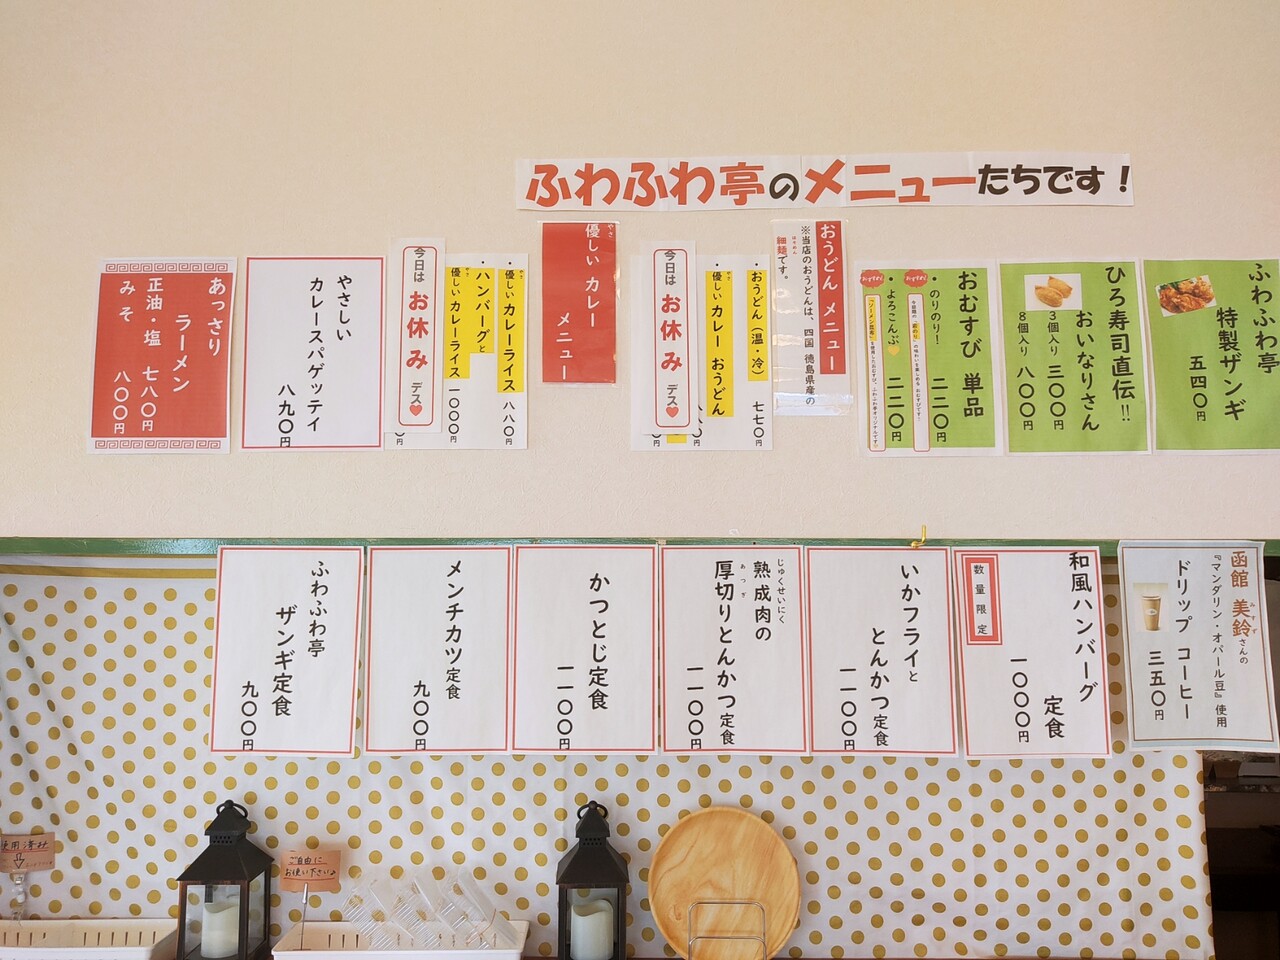 ふわふわ亭のメニューたちです！
ふわふわ亭
特製ザンギ
五四〇円
ひろ寿司直伝!!
おいなりさん
3個入り 三〇〇円
8個入り 八〇〇円
おむすび 単品
・のりのり！ 二二〇円
・よろこんぶ 二二〇円
おうどん メニュー
※当店のおうどんは、四国 徳島県産の
細麺です。
・おうどん（温・冷） 七七〇円
やさ
優しい カレー おうどん
今日は お休み デス
やさ
優しい カレー
メニュー
・優しいカレーライス 八八〇円
・ハンバーグと
優しいカレーライス 一〇〇〇円
今日は お休み デス
やさしい
カレースパゲッティ
八九〇円
あっさり
ラーメン
正油・塩 七八〇円
みそ 八〇〇円
函館 美鈴さんの
みすず
『マンダリン・オパール豆』使用
ドリップ コーヒー
三五〇円
和風ハンバーグ
定食
一〇〇〇円
数量限定
いかフライと
とんかつ定食
一一〇〇円
じゅくせいにく
熟成肉の
あつぎ
厚切りとんかつ定食
一一〇〇円
かつとじ定食
一一〇〇円
メンチカツ定食
九〇〇円
ふわふわ亭
ザンギ定食
九〇〇円
使用済み
ご自由に
お使い下さい♪